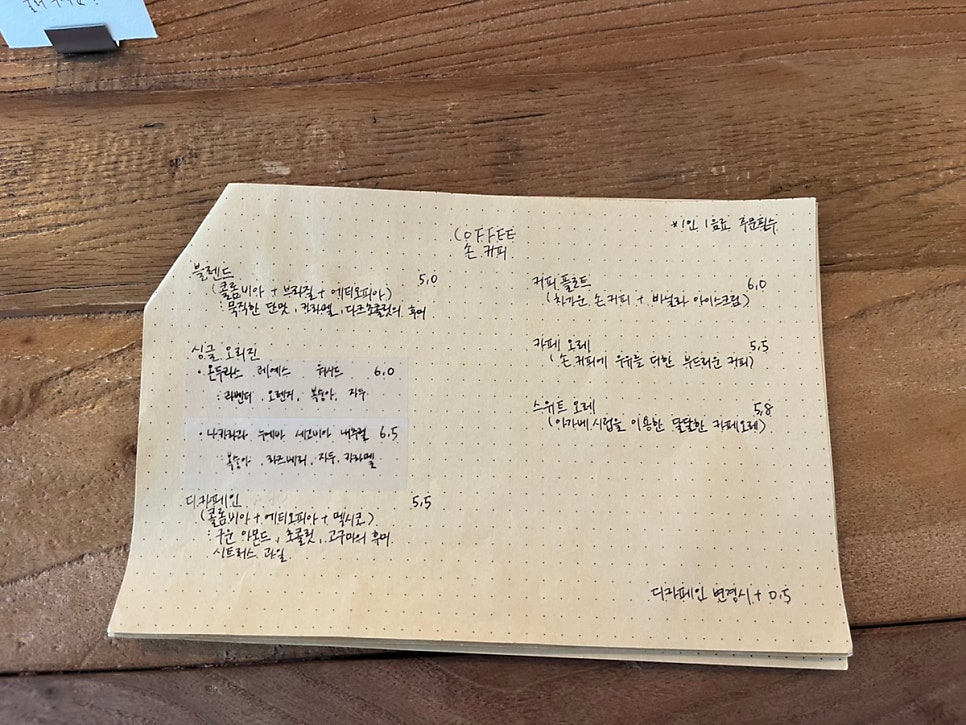 COFFEE
손 커피
*1인 1음료 주문필수
블렌드 5.0
(콜롬비아 + 브라질 + 에티오피아)
: 묵직한 단맛, 카라멜, 다크초콜릿의 후미
싱글 오리진
· 온두라스 레예스 워시드 6.0
: 라벤더, 오렌지, 복숭아, 자두
· 니카라과 누에바 세고비아 내추럴 6.5
: 복숭아, 라즈베리, 자두, 카라멜
디카페인 5.5
(콜롬비아 + 에티오피아 + 멕시코)
: 구운 아몬드, 초콜릿, 고구마의 후미
시트러스 과일
커피 플로트 6.0
(차가운 손 커피 + 바닐라 아이스크림)
카페 오레 5.5
(손 커피에 우유를 더한 부드러운 커피)
스위트 오레 5.8
(아가베 시럽을 이용한 달달한 카페오레)
디카페인 변경시 + 0.5